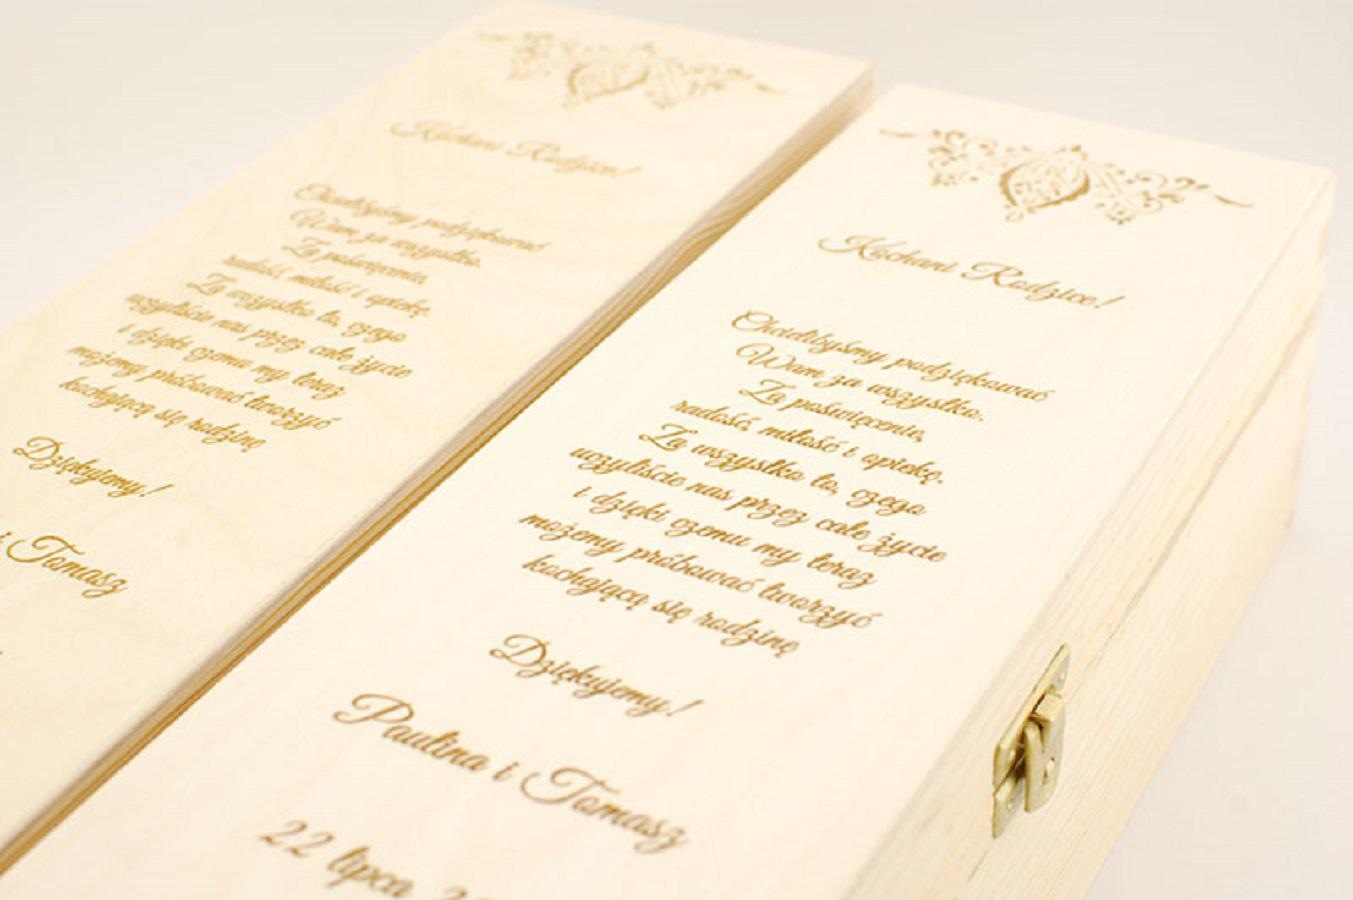 Kochani Rodzice!
Chcielibyśmy podziękować
Wam za wszystko.
Za poświęcenie,
radość, miłość i opiekę.
Za wszystko to, czego
uczyliście nas przez całe życie
i dzięki czemu my teraz
możemy próbować tworzyć
kochającą się rodzinę
Dziękujemy!
i Tomasz
Kochani Rodzice!
Chcielibyśmy podziękować
Wam za wszystko.
Za poświęcenie,
radość, miłość i opiekę.
Za wszystko to, czego
uczyliście nas przez całe życie
i dzięki czemu my teraz
możemy próbować tworzyć
kochającą się rodzinę
Dziękujemy!
Paulina i Tomasz
22 lipca